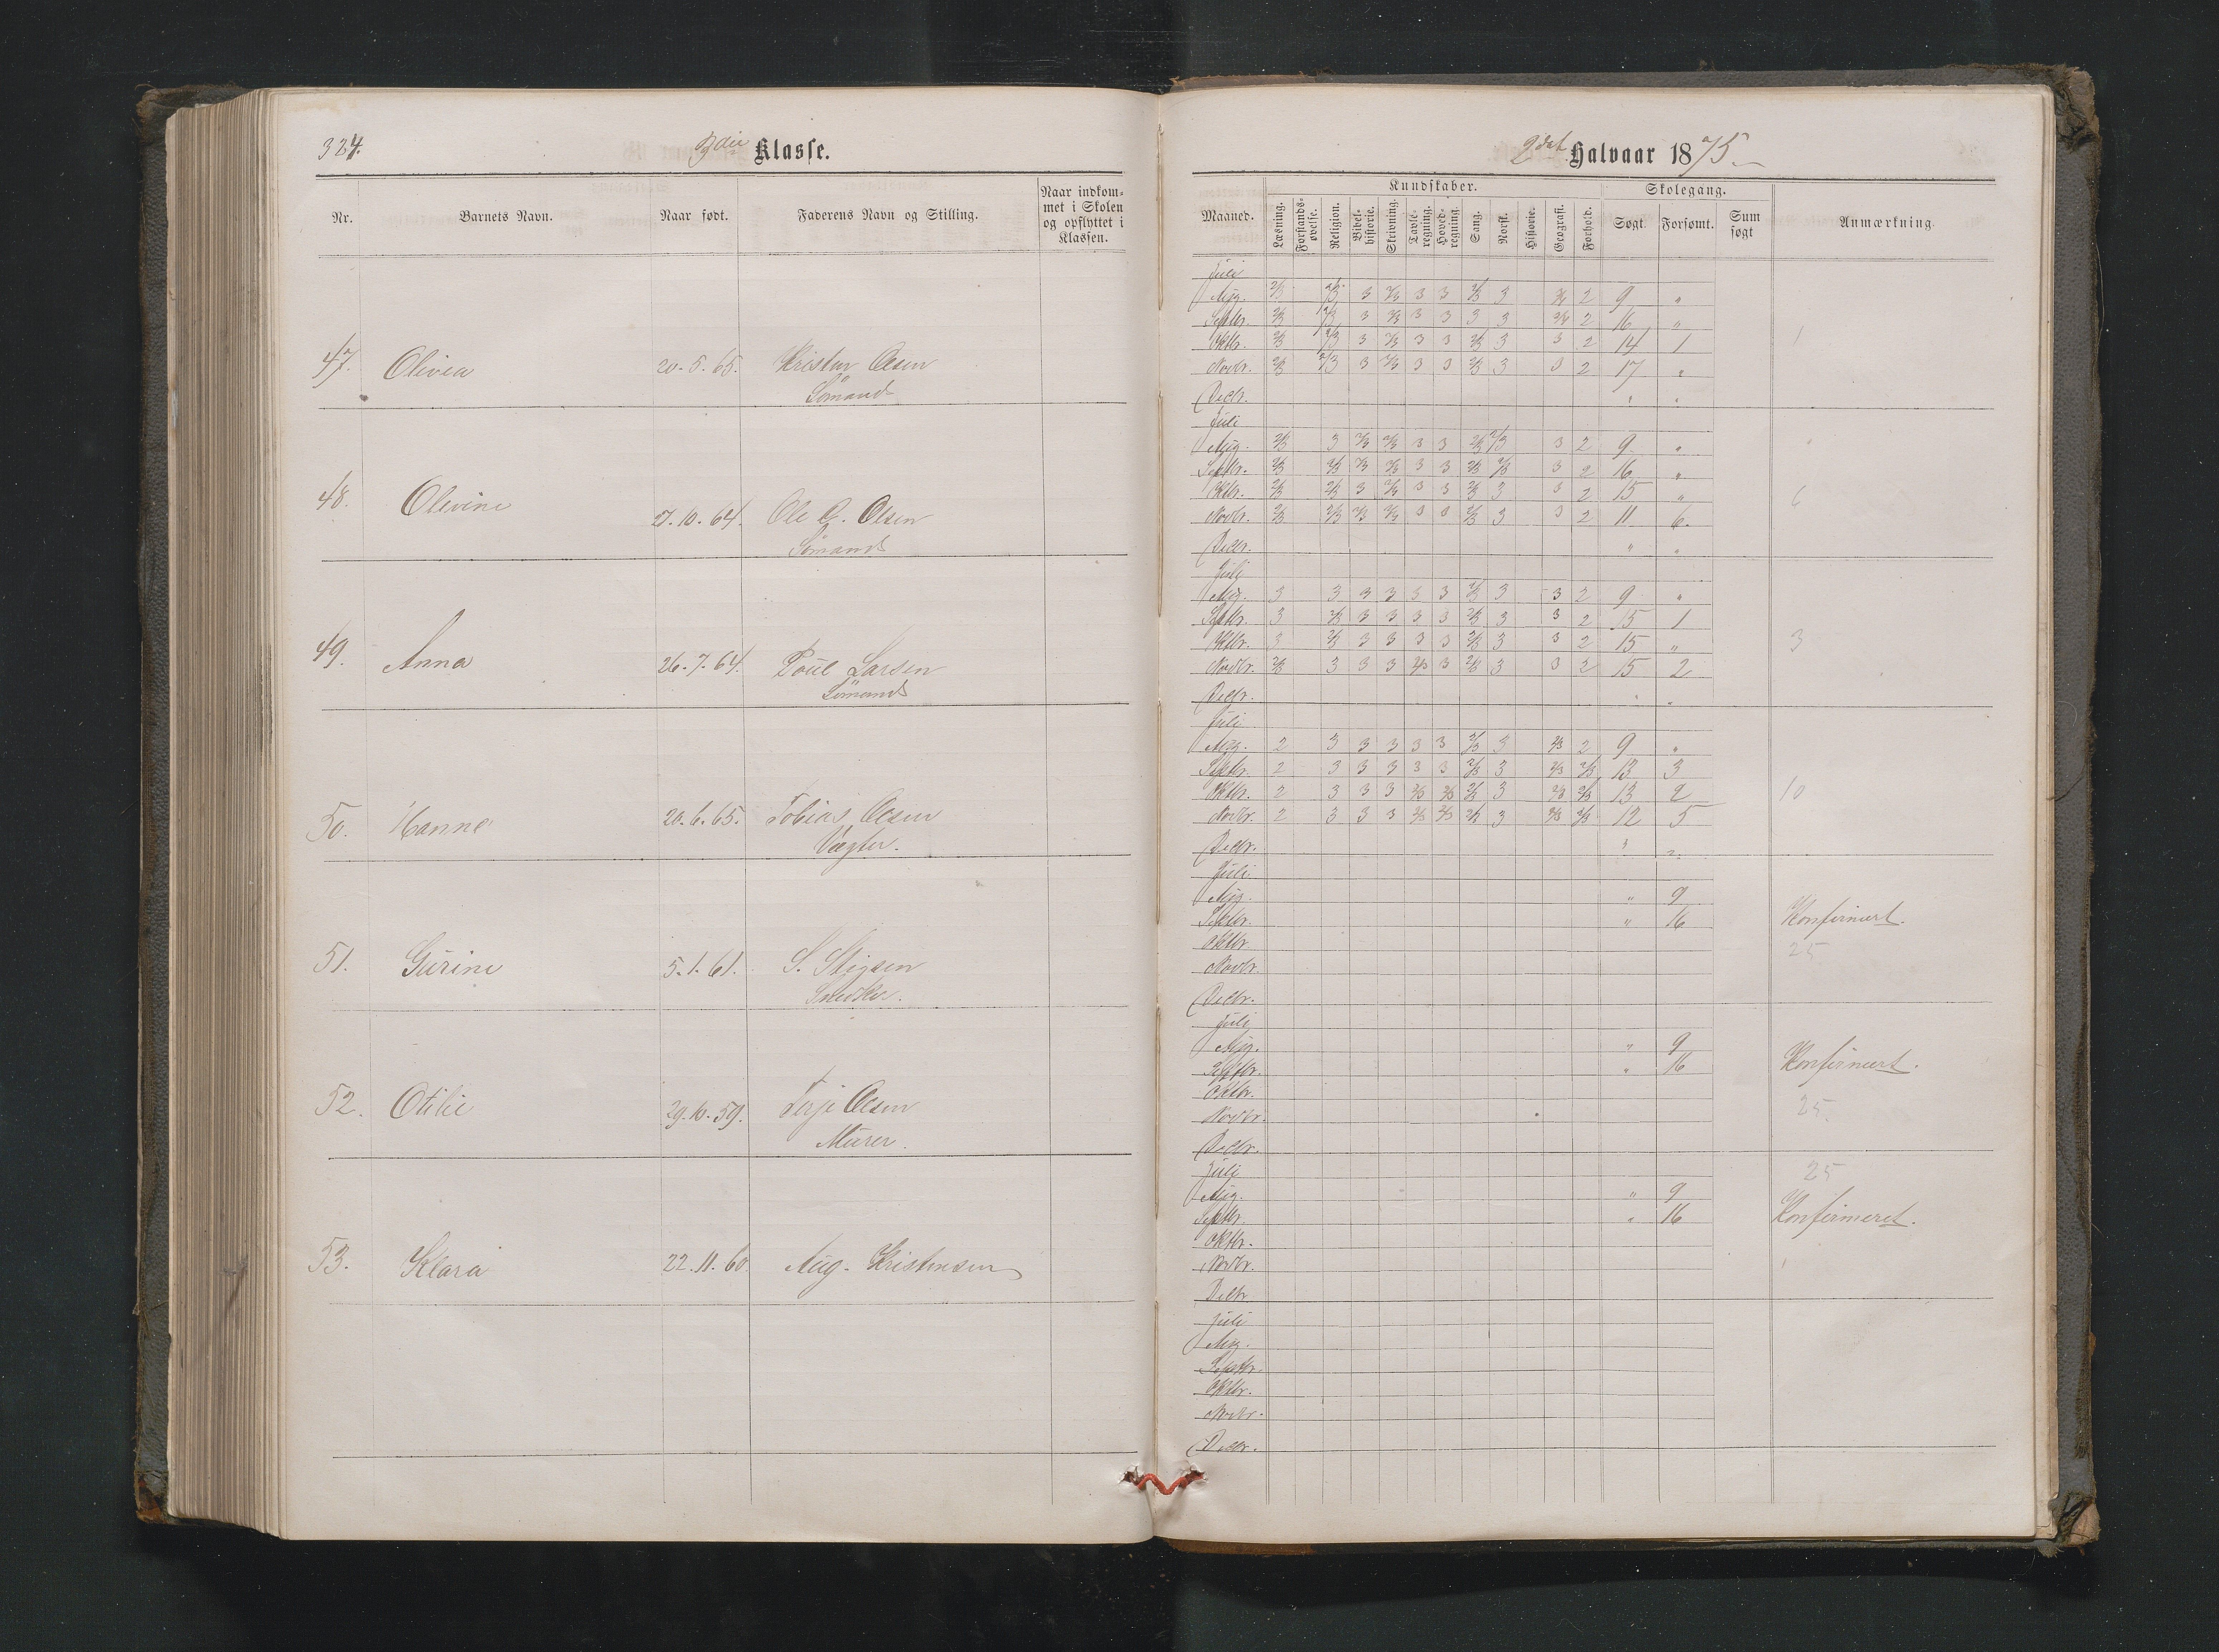 324.
3die Klasse.
Nr.
Barnets Navn.
Naar født.
Faderens Navn og Stilling.
Naar indkom-
met i Skolen
og opflyttet i
Klassen.
47. Olivia 20.5.65. Kristen Olsen
Sømand
48. Olevine 27.10.64. Ole G. Olsen
Sømand
49. Anna 26.7.64. Poul Larsen
Sømand
50. Hanne 20.6.65. Tobias Olsen
Vægter.
51. Gurine 5.1.61. S. Stigsen
Snedker.
52. Otilie 29.10.59. Terje Olsen
Murer.
53. Klara 22.11.60 Aug. Kristensen
2det Halvaar 1875.
Kundskaber.
Skolegang.
Maaned.
Læsning.
Forstands-
øvelse.
Religion.
Bibel-
historie.
Skrivning.
Tavle-
regning.
Hoved-
regning.
Sang.
Norsk.
Historie.
Geografi.
Forhold.
Søgt
Forsømt.
Sum
søgt
Anmærkning.
Juli
Aug. 2/3 2/3 3 2/3 3 3 2/3 3 3/4 2 9 "
Septbr. 2/3 2/3 3 2/3 3 3 3 3 3/4 2 16 "
Oktbr. 2/3 2/3 3 2/3 3 3 2/3 3 3 2 14 1
1
Novbr. 2/3 2/3 3 2/3 3 3 2/3 3 3 2 17 "
Decbr. " "
Juli
Aug. 2/3 3 2/3 2/3 3 3 2/3 2/3 3 2 9 "
Septbr. 2/3 2/3 2/3 2/3 3 3 2/3 2/3 3 2 16 "
Oktbr. 2/3 2/3 3 2/3 3 3 2/3 3 3 2 15 "
6
Novbr. 2/3 2/3 2/3 2/3 3 3 2/3 3 3 2 11 6
Decbr. " "
Juli
Aug. 3 3 3 3 3 3 2/3 3 3 2 9 "
Septbr. 3 2/3 3 3 3 3 2/3 3 3 2 15 1
Oktbr. 3 2/3 3 3 3 3 2/3 3 3 2 15 "
3
Novbr. 2/3 3 3 3 2/3 3 2/3 3 3 2 15 2
Decbr. " "
Juli
Aug. 2 3 3 3 3 3 2/3 3 2/3 2 9 "
Septbr. 2 3 3 3 3 3 2/3 3 2/3 2/3 13 3
Oktbr. 2 3 3 3 2/3 2/3 2/3 3 2/3 2/3 13 2
10
Novbr. 2 3 3 3 2/3 2/3 2/3 3 2/3 2/3 12 5
Decbr. " "
Juli
Aug. " 9
Septbr. " 16 Konfirmert.
Oktbr.
25
Novbr.
Decbr.
Juli
Aug. " 9
Septbr. " 16 Konfirmert.
Oktbr.
25
Novbr.
Decbr.
Juli
25
Aug. " 9
Septbr. " 16 Konfirmeret.
Oktbr.
Novbr.
Decbr
Juli
Aug.
Septbr.
Oktbr.
Novbr.
Decbr.